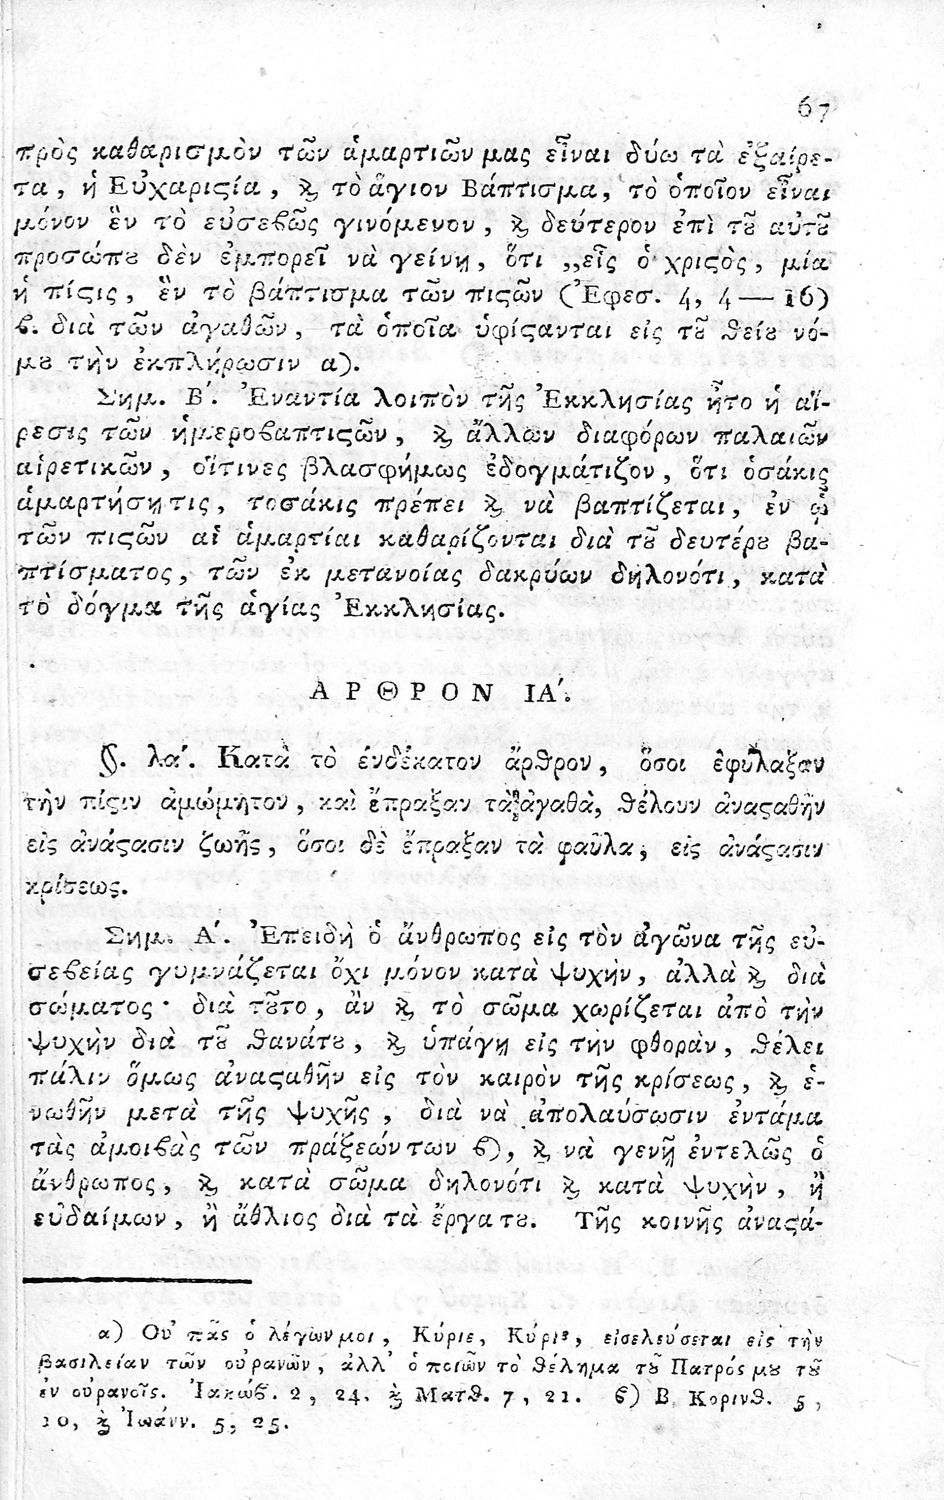 67
πρὸς καθαρισμὸν τῶν ἁμαρτιῶν μας εἶναι δύω τὰ ἐξαίρε-
τα, ἡ Εὐχαριϛία, ϗ τὸ ἅγιον Βάπτισμα, τὸ ὁποῖον εἶναι
μόνον ἓν τὸ εὐσεβῶς γινόμενον, ϗ δεύτερον ἐπὶ τȣ͂ αὐτȣ͂
προσώπȣ δὲν ἐμπορεῖ νὰ γείνῃ, ὅτι „εἷς ὁ χριϛὸς, μία
ἡ πίϛις, ἓν τὸ βάπτισμα τῶν πιϛῶν (Ἐφεσ. 4, 4 — 16)
ϐ. διὰ τῶν ἀγαθῶν, τὰ ὁποῖα ὑφίϛανται εἰς τȣ͂ ϑείȣ νό-
μȣ τὴν ἐκπλήρωσιν α).
Σημ. Β΄. Ἐναντία λοιπὸν τῆς Ἐκκλησίας ἦτο ἡ αἵ-
ρεσις τῶν ἡμεροϐαπτιϛῶν, ϗ ἄλλων διαφόρων παλαιῶν
αἱρετικῶν, οἵτινες βλασφήμως ἐδογμάτιζον, ὅτι ὁσάκις
ἁμαρτήσῃ τις, τοσάκις πρέπει ϗ νὰ βαπτίζεται, ἐν ᾧ
τῶν πιϛῶν αἱ ἁμαρτίαι καθαρίζονται διὰ τȣ͂ δευτέρȣ βα-
πτίσματος, τῶν ἐκ μετανοίας δακρύων δηλονότι, κατὰ
τὸ δόγμα τῆς ἁγίας Ἐκκλησίας.
ΑΡΘΡΟΝ ΙΑ΄.
§. λα΄. Κατὰ τὸ ἑνδέκατον ἄρϑρον, ὅσοι ἐφύλαξαν
τὴν πίϛιν ἀμώμητον, καὶ ἔπραξαν τὰ ἀγαθὰ, ϑέλουν ἀναϛαθῆν
εἰς ἀνάϛασιν ζωῆς, ὅσοι δὲ ἔπραξαν τὰ φαῦλα, εἰς ἀνάϛασιν
κρίσεως.
Σημ. Α΄. Ἐπειδὴ ὁ ἄνθρωπος εἰς τὸν ἀγῶνα τῆς εὐ-
σεϐείας γυμνάζεται ὄχι μόνον κατὰ ψυχὴν, ἀλλὰ ϗ διὰ
σώματος· διὰ τȣ͂το, ἂν ϗ τὸ σῶμα χωρίζεται ἀπὸ τὴν
ψυχὴν διὰ τȣ͂ ϑανάτȣ, ϗ ὑπάγῃ εἰς τὴν φθορὰν, ϑέλει
πάλιν ὅμως ἀναϛαθῆν εἰς τὸν καιρὸν τῆς κρίσεως, ϗ ἑ-
νωθῆν μετὰ τῆς ψυχῆς, διὰ νὰ ἀπολαύσωσιν ἐντάμα
τὰς ἀμοιϐὰς τῶν πράξεών των ϐ), ϗ νὰ γενῇ ἐντελῶς ὁ
ἄνθρωπος, ϗ κατὰ σῶμα δηλονότι ϗ κατὰ ψυχὴν, ἢ
εὐδαίμων, ἢ ἄθλιος διὰ τὰ ἔργα τȣ. Τῆς κοινῆς ἀναϛά-
α) Οὐ πᾶς ὁ λέγων μοι, Κύριε, Κύριε, εἰσελεύσεται εἰς τὴν
βασιλείαν τῶν οὐρανῶν, ἀλλ' ὁ ποιῶν τὸ ϑέλημα τȣ͂ Πατρός μȣ τȣ͂
ἐν οὐρανοῖς. Ἰακώϐ. 2, 24. ϗ Ματϑ. 7, 21. ϐ) Β. Κορινϑ. 5,
10, ϗ Ἰωάνν. 5, 25.